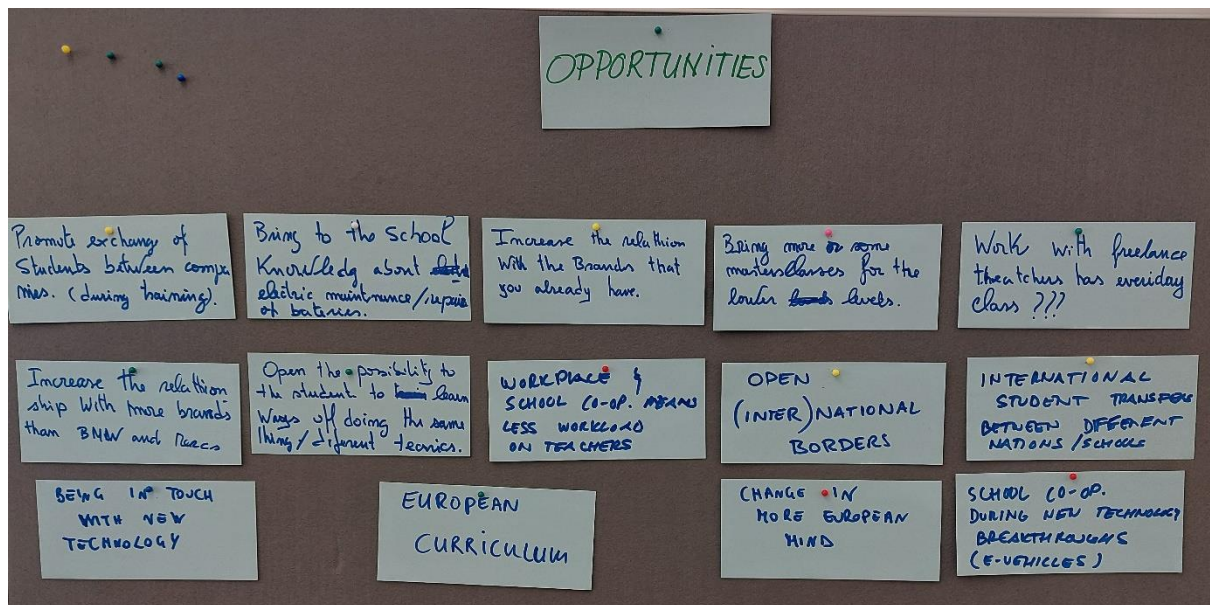 OPPORTUNITIES
Promote exchang of
Students between compa
nies. (during training).
Bring to the School
Knowledg about
eletric maintnance/repair
of bateries.
Increase the relathion
With the Brands that
you already have.
Bring more or some
masterclasses for the
louter levels.
Work with freelance
threatchers has everiday
class ???
Increase the relathion
ship With more brands
than BMW and
Open the possibility to
the student to learn
Ways off doing the same
thing / diferent tecnics.
WORKPLACE &
SCHOOL CO-OP. MEANS
LESS WORKLOAD
ON TEACHERS
OPEN
(INTER)NATIONAL
BORDERS
INTERNATIONAL
STUDENT TRANSFERS
BETWEEN DIFFERENT
NATIONS/SCHOOLS
BEING IN TOUCH
WITH NEW
TECHNOLOGY
EUROPEAN
CURRICULUM
CHANGE IN
MORE EUROPEAN
MIND
SCHOOL CO-OP.
DURING NEW TECHNOLOGY
BREAKTHROUGHS
(E-VEHICLES)